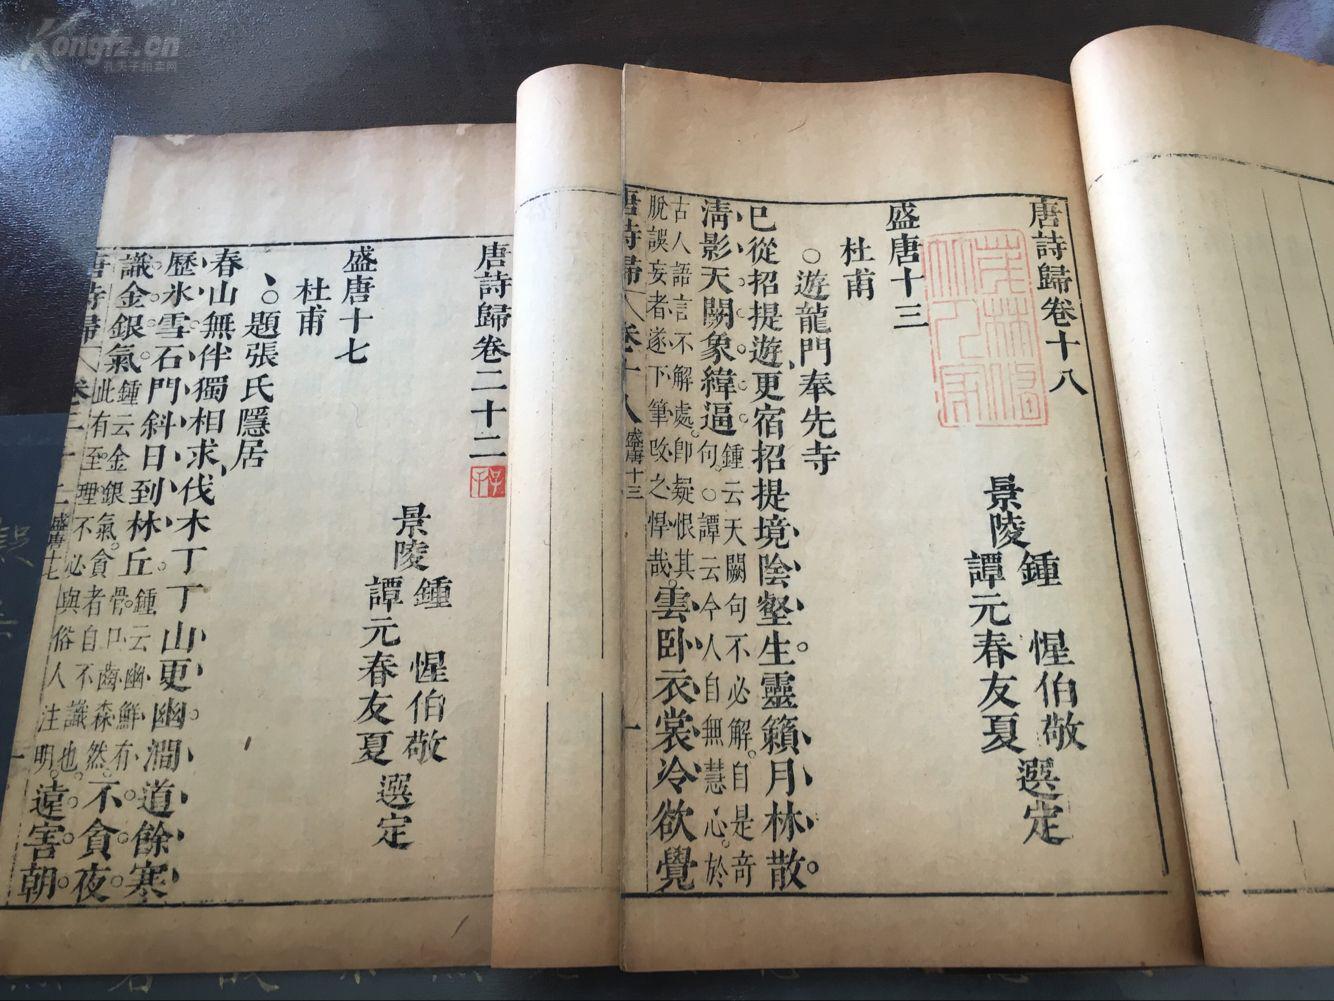 唐詩歸卷十八
景陵
鍾 惺伯敬
譚元春友夏
選定
盛唐十三
杜甫
○遊龍門奉先寺
已從招提遊更宿招提境陰壑生靈籟月林散
清影天闕象緯逼句。○譚云今人自無慧心。於
鍾云天闕句不必解。自是奇
古人語言不解處。卽疑恨其
脫誤妄者遂下筆改之悍哉。
雲臥衣裳冷欲覺
唐詩歸
卷十八
盛唐十三
一
唐詩歸卷二十二
景陵
鍾 惺伯敬
譚元春友夏
選定
盛唐十七
杜甫
○題張氏隱居
春山無伴獨相求伐木丁丁山更幽澗道餘寒
歷氷雪石門斜日到林丘。
鍾云幽鮮有
骨口齒森然。
不貪夜
識金銀氣
鍾云金銀氣。貪者自不識也。
此有至理不必與俗人注明。
遠害朝
唐詩歸
卷二十二
盛唐十七
一
Kongfz.cn